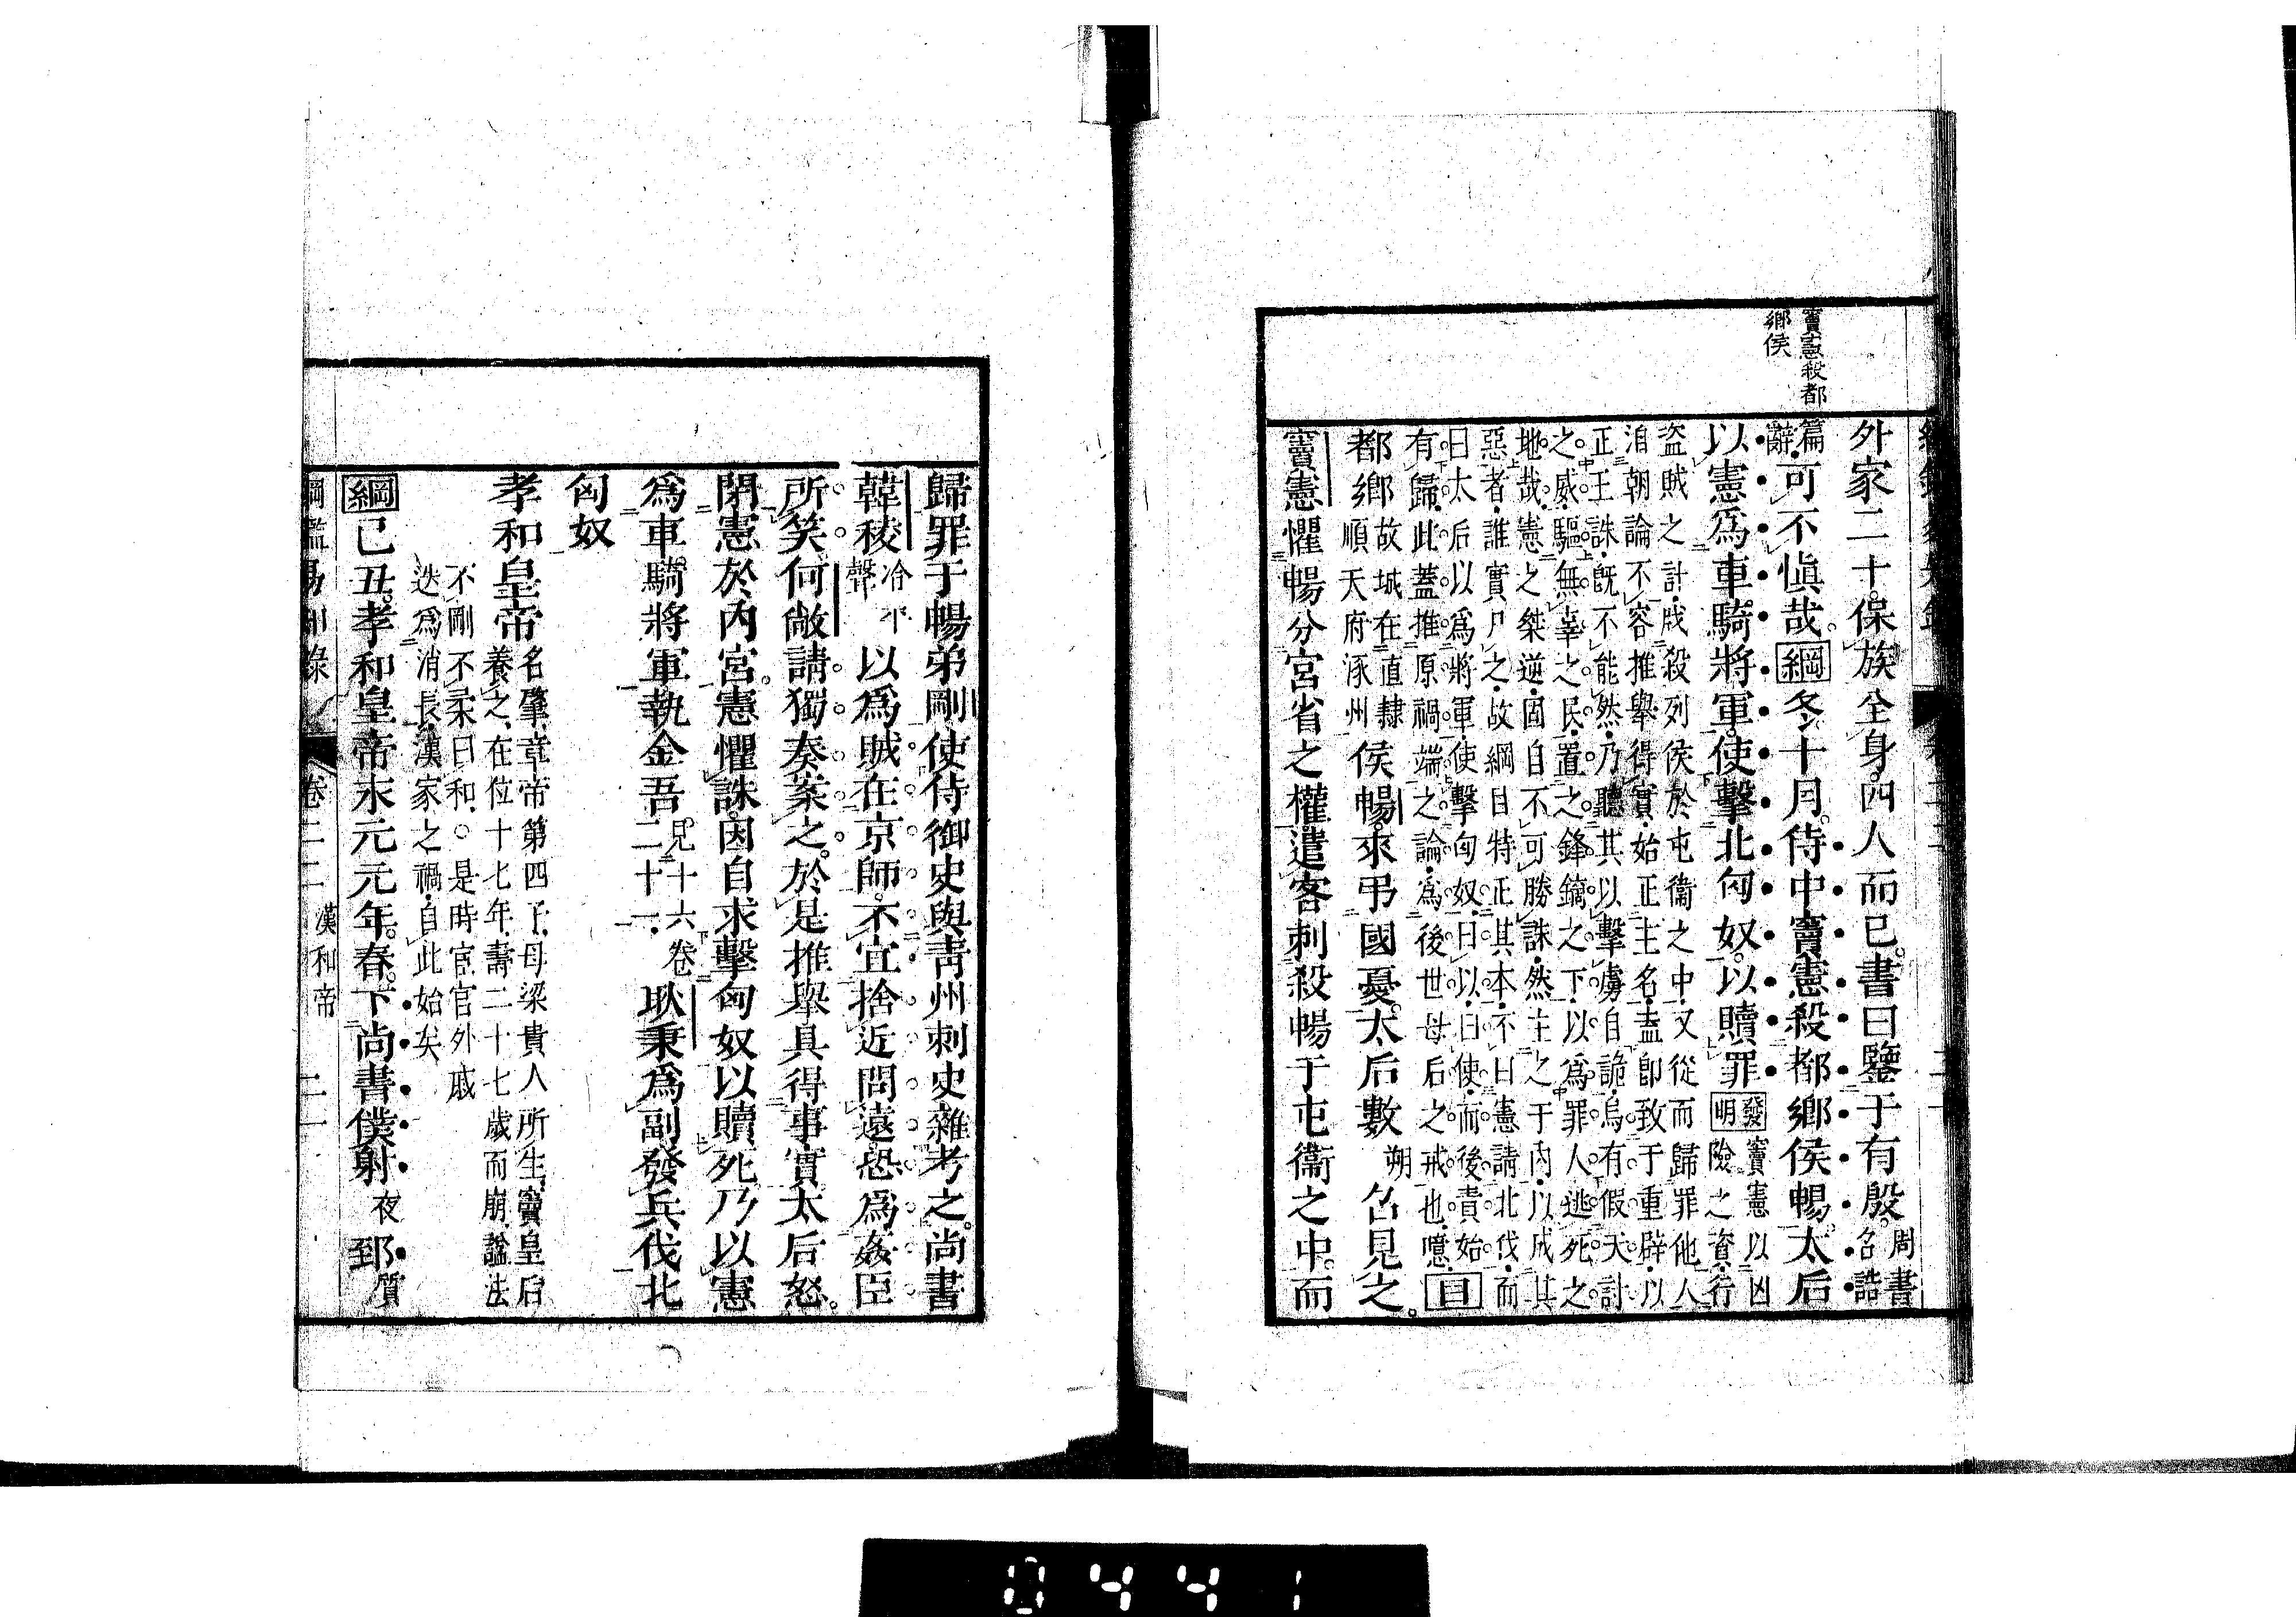 竇憲殺都
鄉侯
外家二十。保族全身。四人而已。書曰鑒于有殷。周書
召誥
篇
辭可不愼哉。綱冬十月。侍中竇憲殺都鄉侯暢。太后
以憲爲車騎將軍。使擊北匈奴。以贖罪發明竇憲以凶
險之資行
盜賊之計戕殺列侯於屯衞之中又從而歸罪他人
洎朝論不容推舉得實始正主名盍卽致于重辟以
正王誅旣不能然乃聽其以擊虜自詭烏有假天討
之威驅無辜之民置之鋒鏑之下以爲罪人逃死之
地哉憲之桀逆固自不可勝誅然主之于內以成其
惡者誰實尸之故綱目特正其本不曰憲請北伐而
曰太后以爲將軍使擊匈奴曰以曰使而後責始
有歸此蓋推原禍端之論爲後世母后之戒也噫目
都鄉故城在直隸
順天府涿州侯暢來弔國憂。太后數朔召見之。
竇憲懼暢分宮省之權。遣客刺殺暢于屯衞之中。而
歸罪于暢弟剛使侍御史與靑州刺史雜考之。尚書
韓稜冷平
聲以爲賊在京師。不宜捨近問遠恐爲姦臣
所笑何敞請獨奏案之。於是推舉具得事實太后怒。
閉憲於內宮。憲懼誅。因自求擊匈奴以贖死乃以憲
爲車騎將軍執金吾見十六卷
二十一耿秉爲副發兵伐北
匈奴
孝和皇帝名肇章帝第四子母梁貴人所生竇皇后
養之在位十七年壽二十七歲而崩諡法
不剛不柔曰和○是時宦官外戚
迭爲消長漢家之禍自此始矣
綱己丑。孝和皇帝永元元年。春。下尚書僕射夜郅質
綱鑑易知錄 卷二二 漢和帝 二一